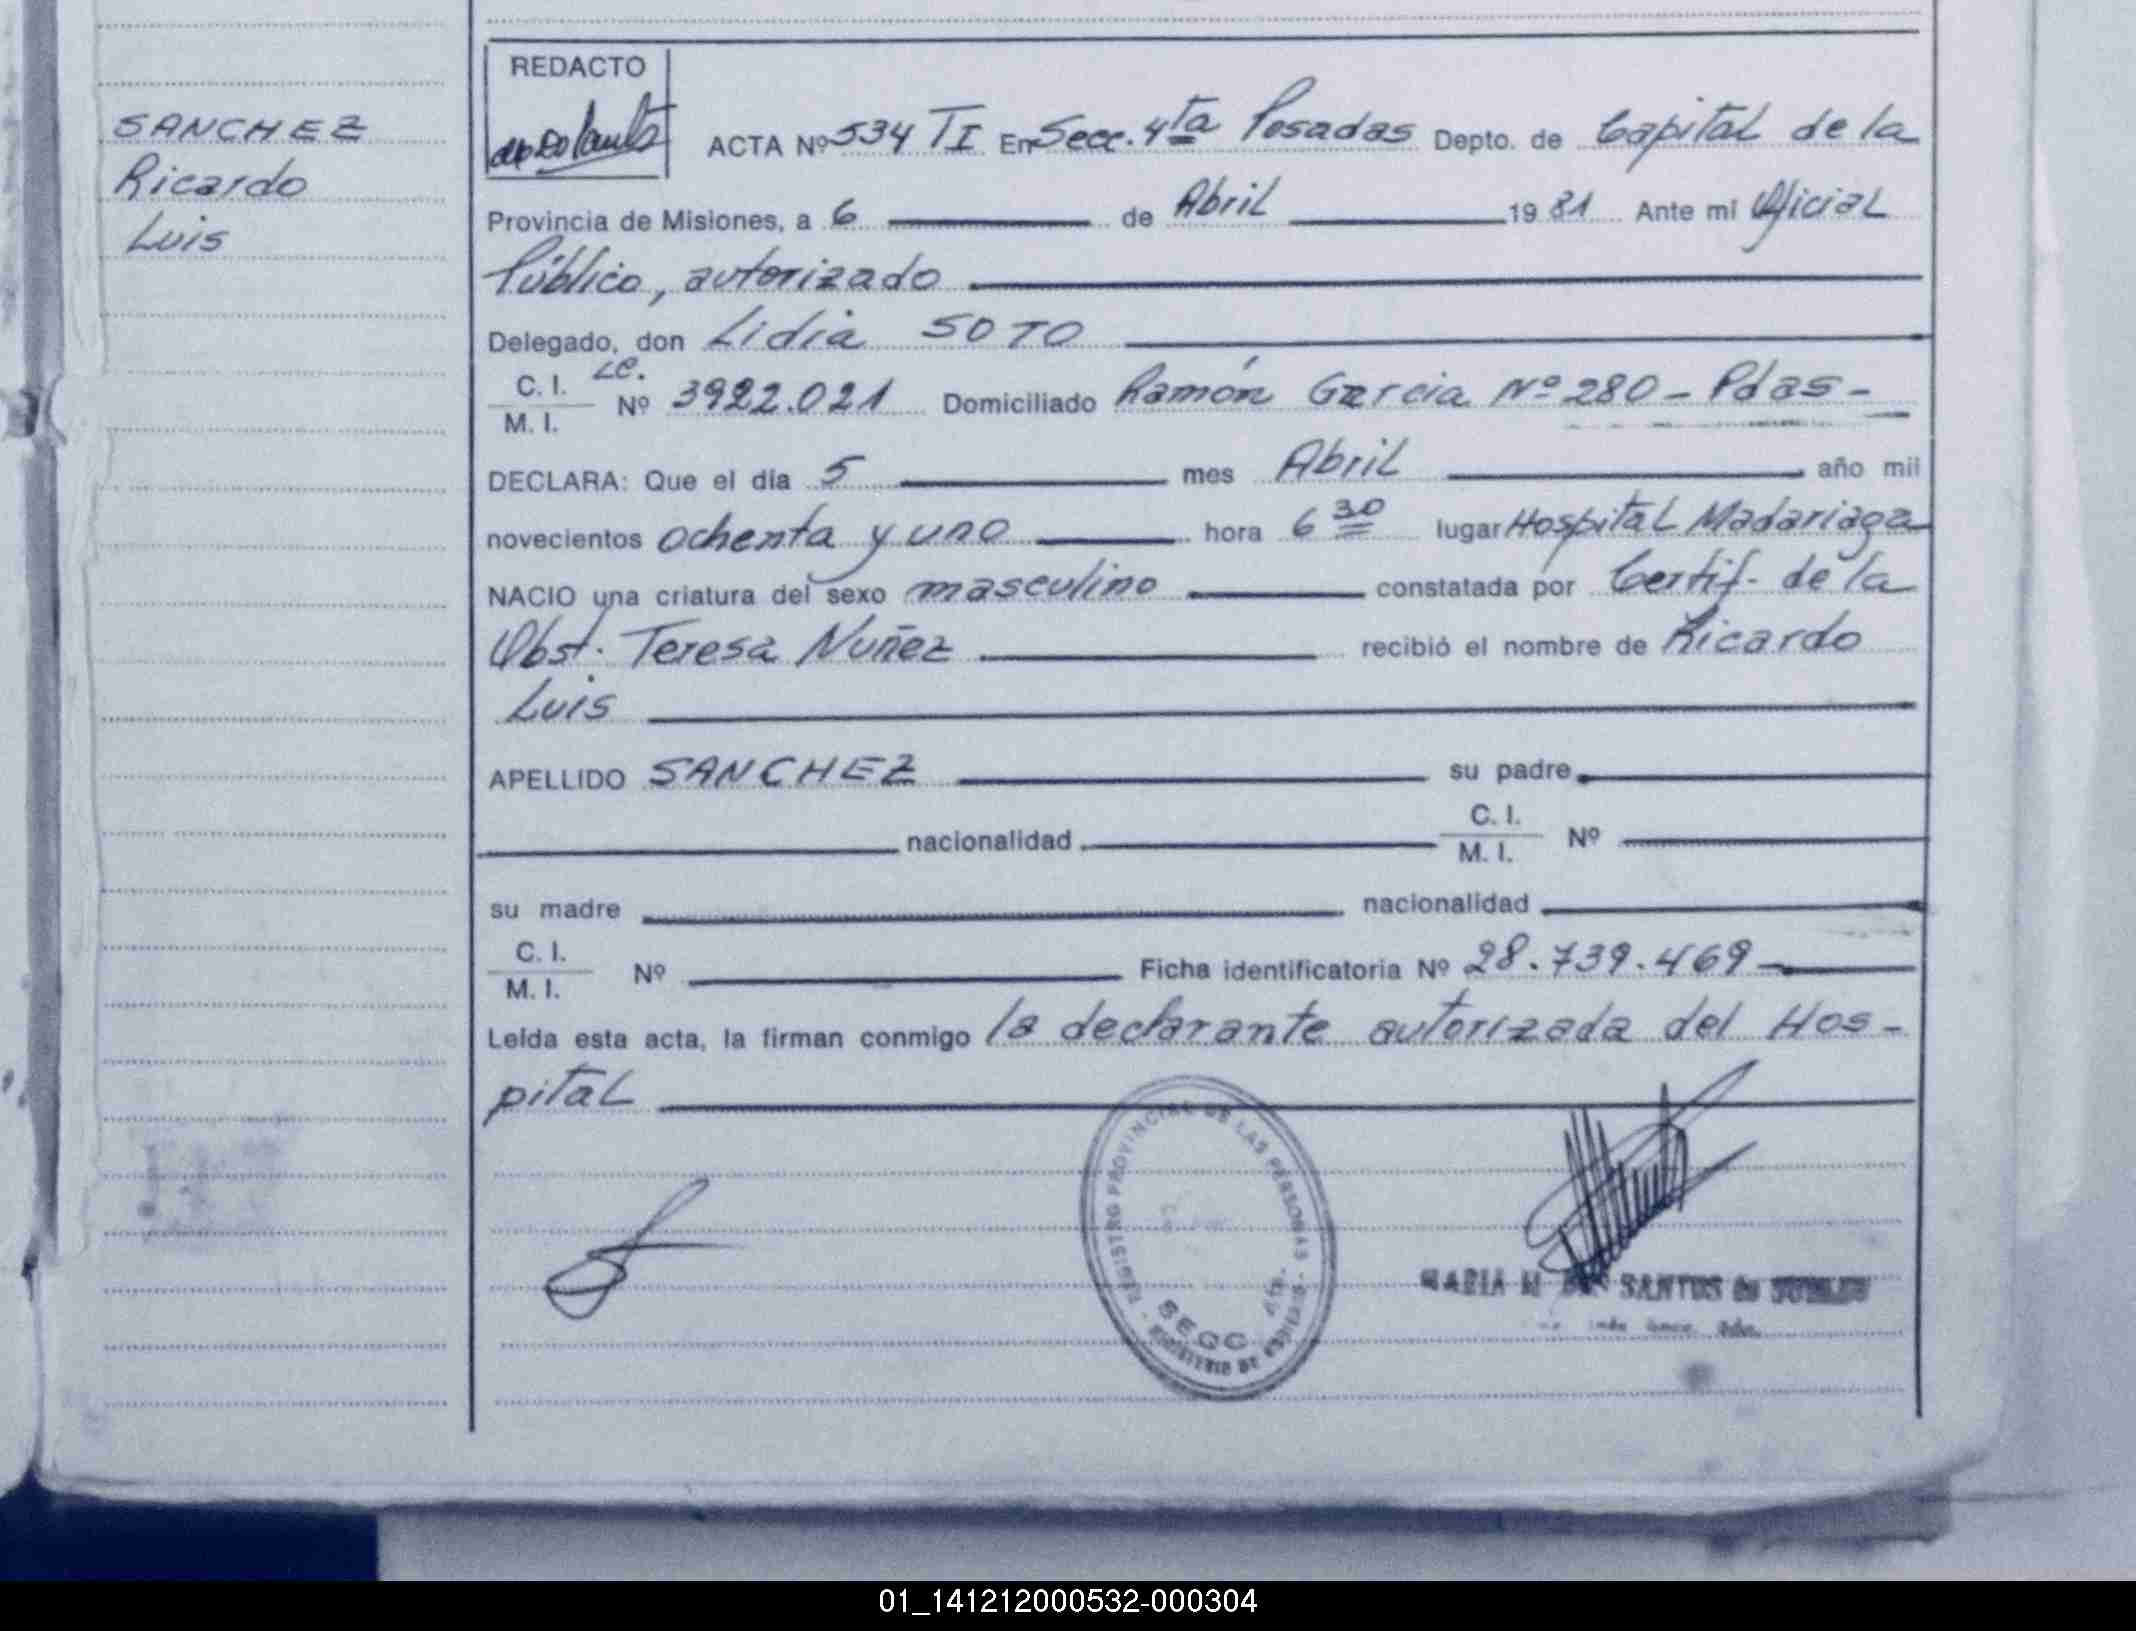 SANCHEZ
Ricardo
Luis
REDACTO
ACTA Nº 534 TI En Secc. 4ta Posadas Depto. de Capital de la
Provincia de Misiones, a 6 de Abril 1981 Ante mi Oficial
Público, autorizado
Delegado, don Lidia SOTO
C. I. LC.
M. I. Nº 3922.021 Domiciliado Ramón Garcia Nº 280 - Pdas -
DECLARA: Que el día 5 mes Abril año mil
novecientos ochenta y uno hora 6 30 lugar Hospital Madariaga
NACIO una criatura del sexo masculino constatada por Certif. de la
Obst. Teresa Nuñez recibió el nombre de Ricardo
Luis
APELLIDO SANCHEZ su padre
nacionalidad C. I. M. I. Nº
su madre nacionalidad
C. I.
M. I. Nº Ficha identificatoria Nº 28.739.469
Leída esta acta, la firman conmigo la declarante autorizada del Hos-
pital
REGISTRO PROVINCIAL DE LAS PERSONAS
MINISTERIO DE
MARIA M. SANTOS de
01_141212000532-000304